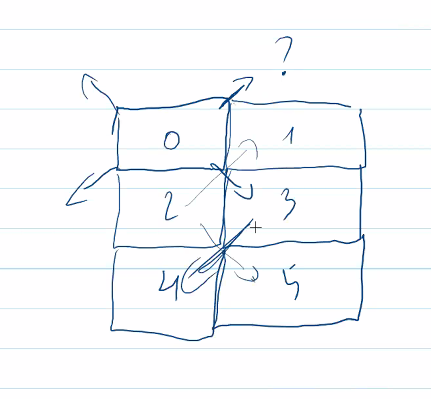 ?
0 1
2 3
4 5